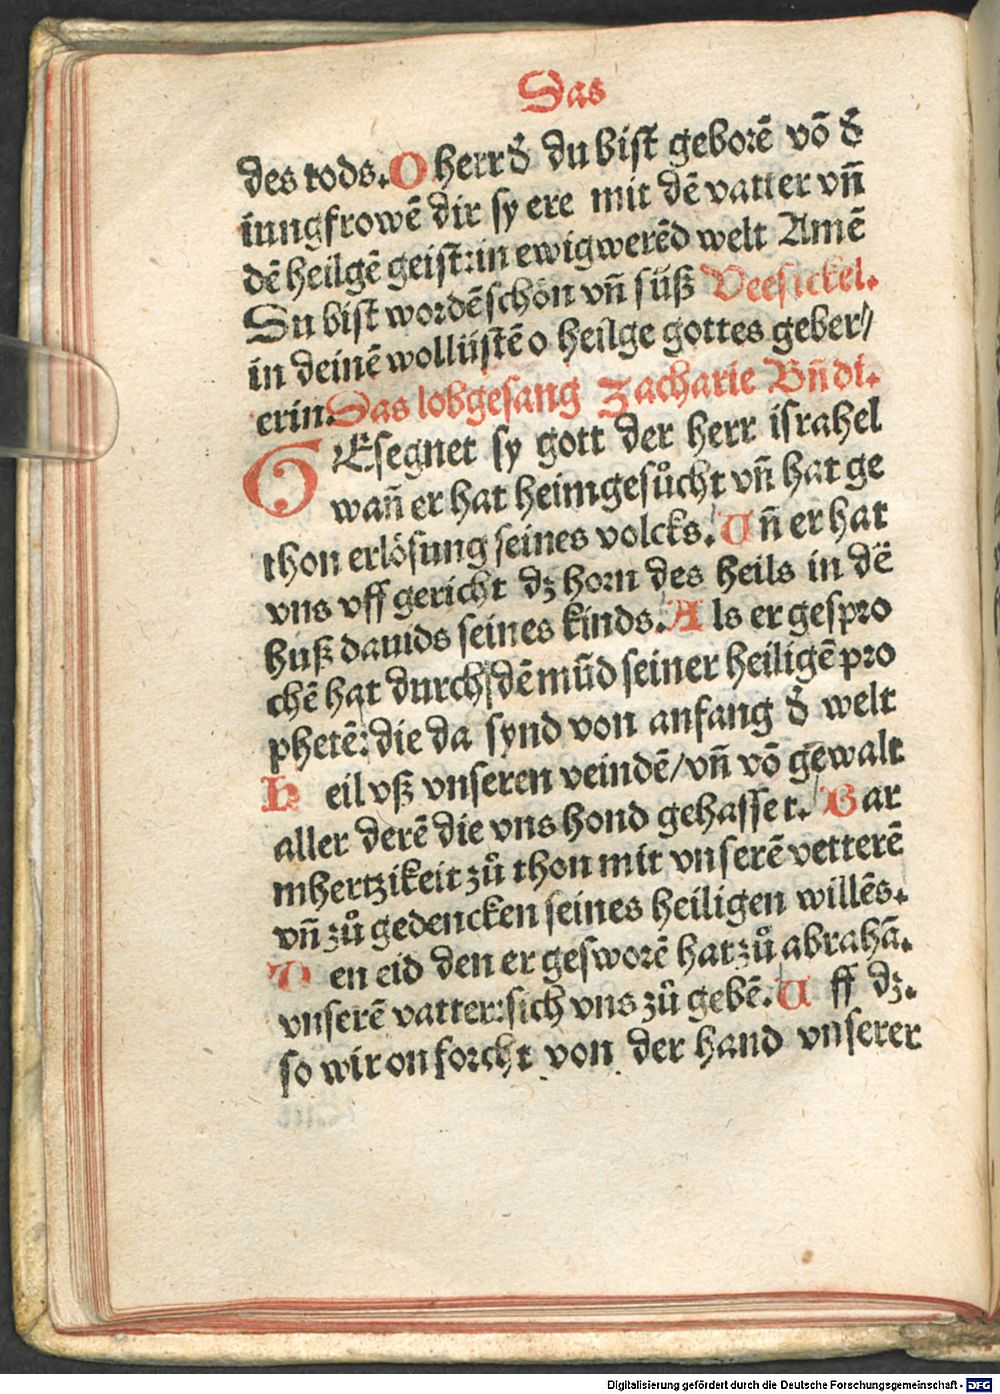 Das
des tods. O herr d̕ du bist geborē vō d̕
iungfrowē dir sy ere mit dē vatter vn̄
dē heilgē geist: in ewigwerēd welt Amē
Du bist wordē schön vn̄ süß Veesickel.
in deinē wollüstē o heilge gottes geber//
erin. Das lobgesang Zacharie Bn̄dt.
GEsegnet sy gott der herr israhel
wan̄ er hat heimgesůcht vn̄ hat ge
thon erlösung seines volcks. Un̄ er hat
vns vff gericht dz horn des heils in dē
huß dauids seines kinds. Als er gespro
chē hat durch dē mūd seiner heiligē pro
phetē: die da synd von anfang d̕ welt
Heil vß vnseren veindē/ vn̄ vō gewalt
aller derē die vns hond gehasset. Bar
mhertzikeit zů thon mit vnserē vetterē
vn̄ zů gedencken seines heiligen willēs.
Den eid den er gesworē hat zů abrahā.
vnserē vatter: sich vns zů gebē. Uff dz.
so wir on forcht von der hand vnserer
Digitalisierung gefördert durch die Deutsche Forschungsgemeinschaft - DFG